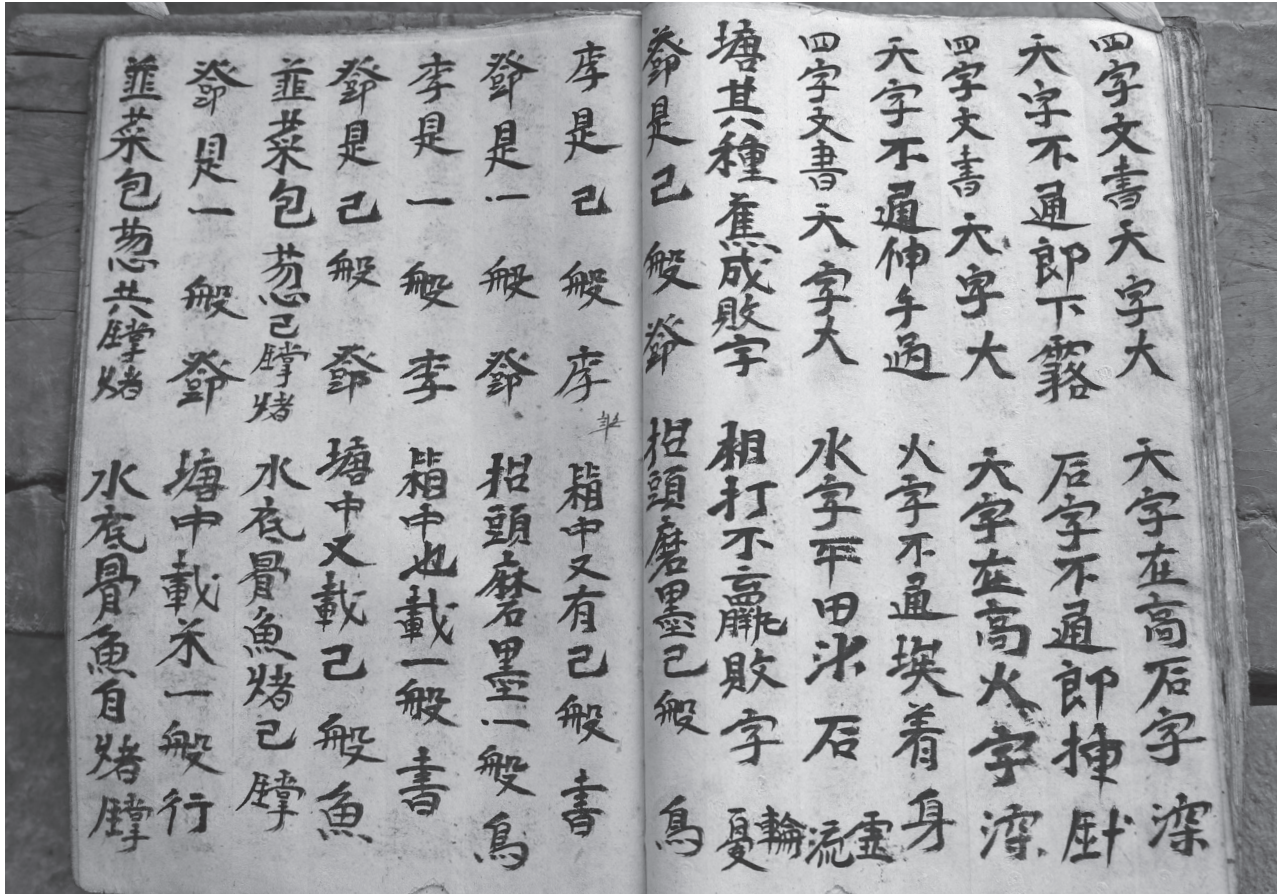 四字文書天字大 天字在高石字深
天字不通郎下霧 石字不通郎
四字文書天字大 天字在高火字深
天字不通伸手過 火字不通埃着身
四字文書天字大 水字平田氺石流靈
塘其種蕉成敗字 相打不贏敗字憂輪
鄧是己般鄧 招頭磨墨己般鳥
李是己般李 箱中又有己般書
鄧是一般鄧 招頭磨墨一般鳥
李是一般李 箱中也載一般書
鄧是己般鄧 塘中又載己般魚
韮菜包葱己 水底骨魚己
鄧是一般鄧 塘中載禾一般行
韮菜包葱共 水底骨魚自